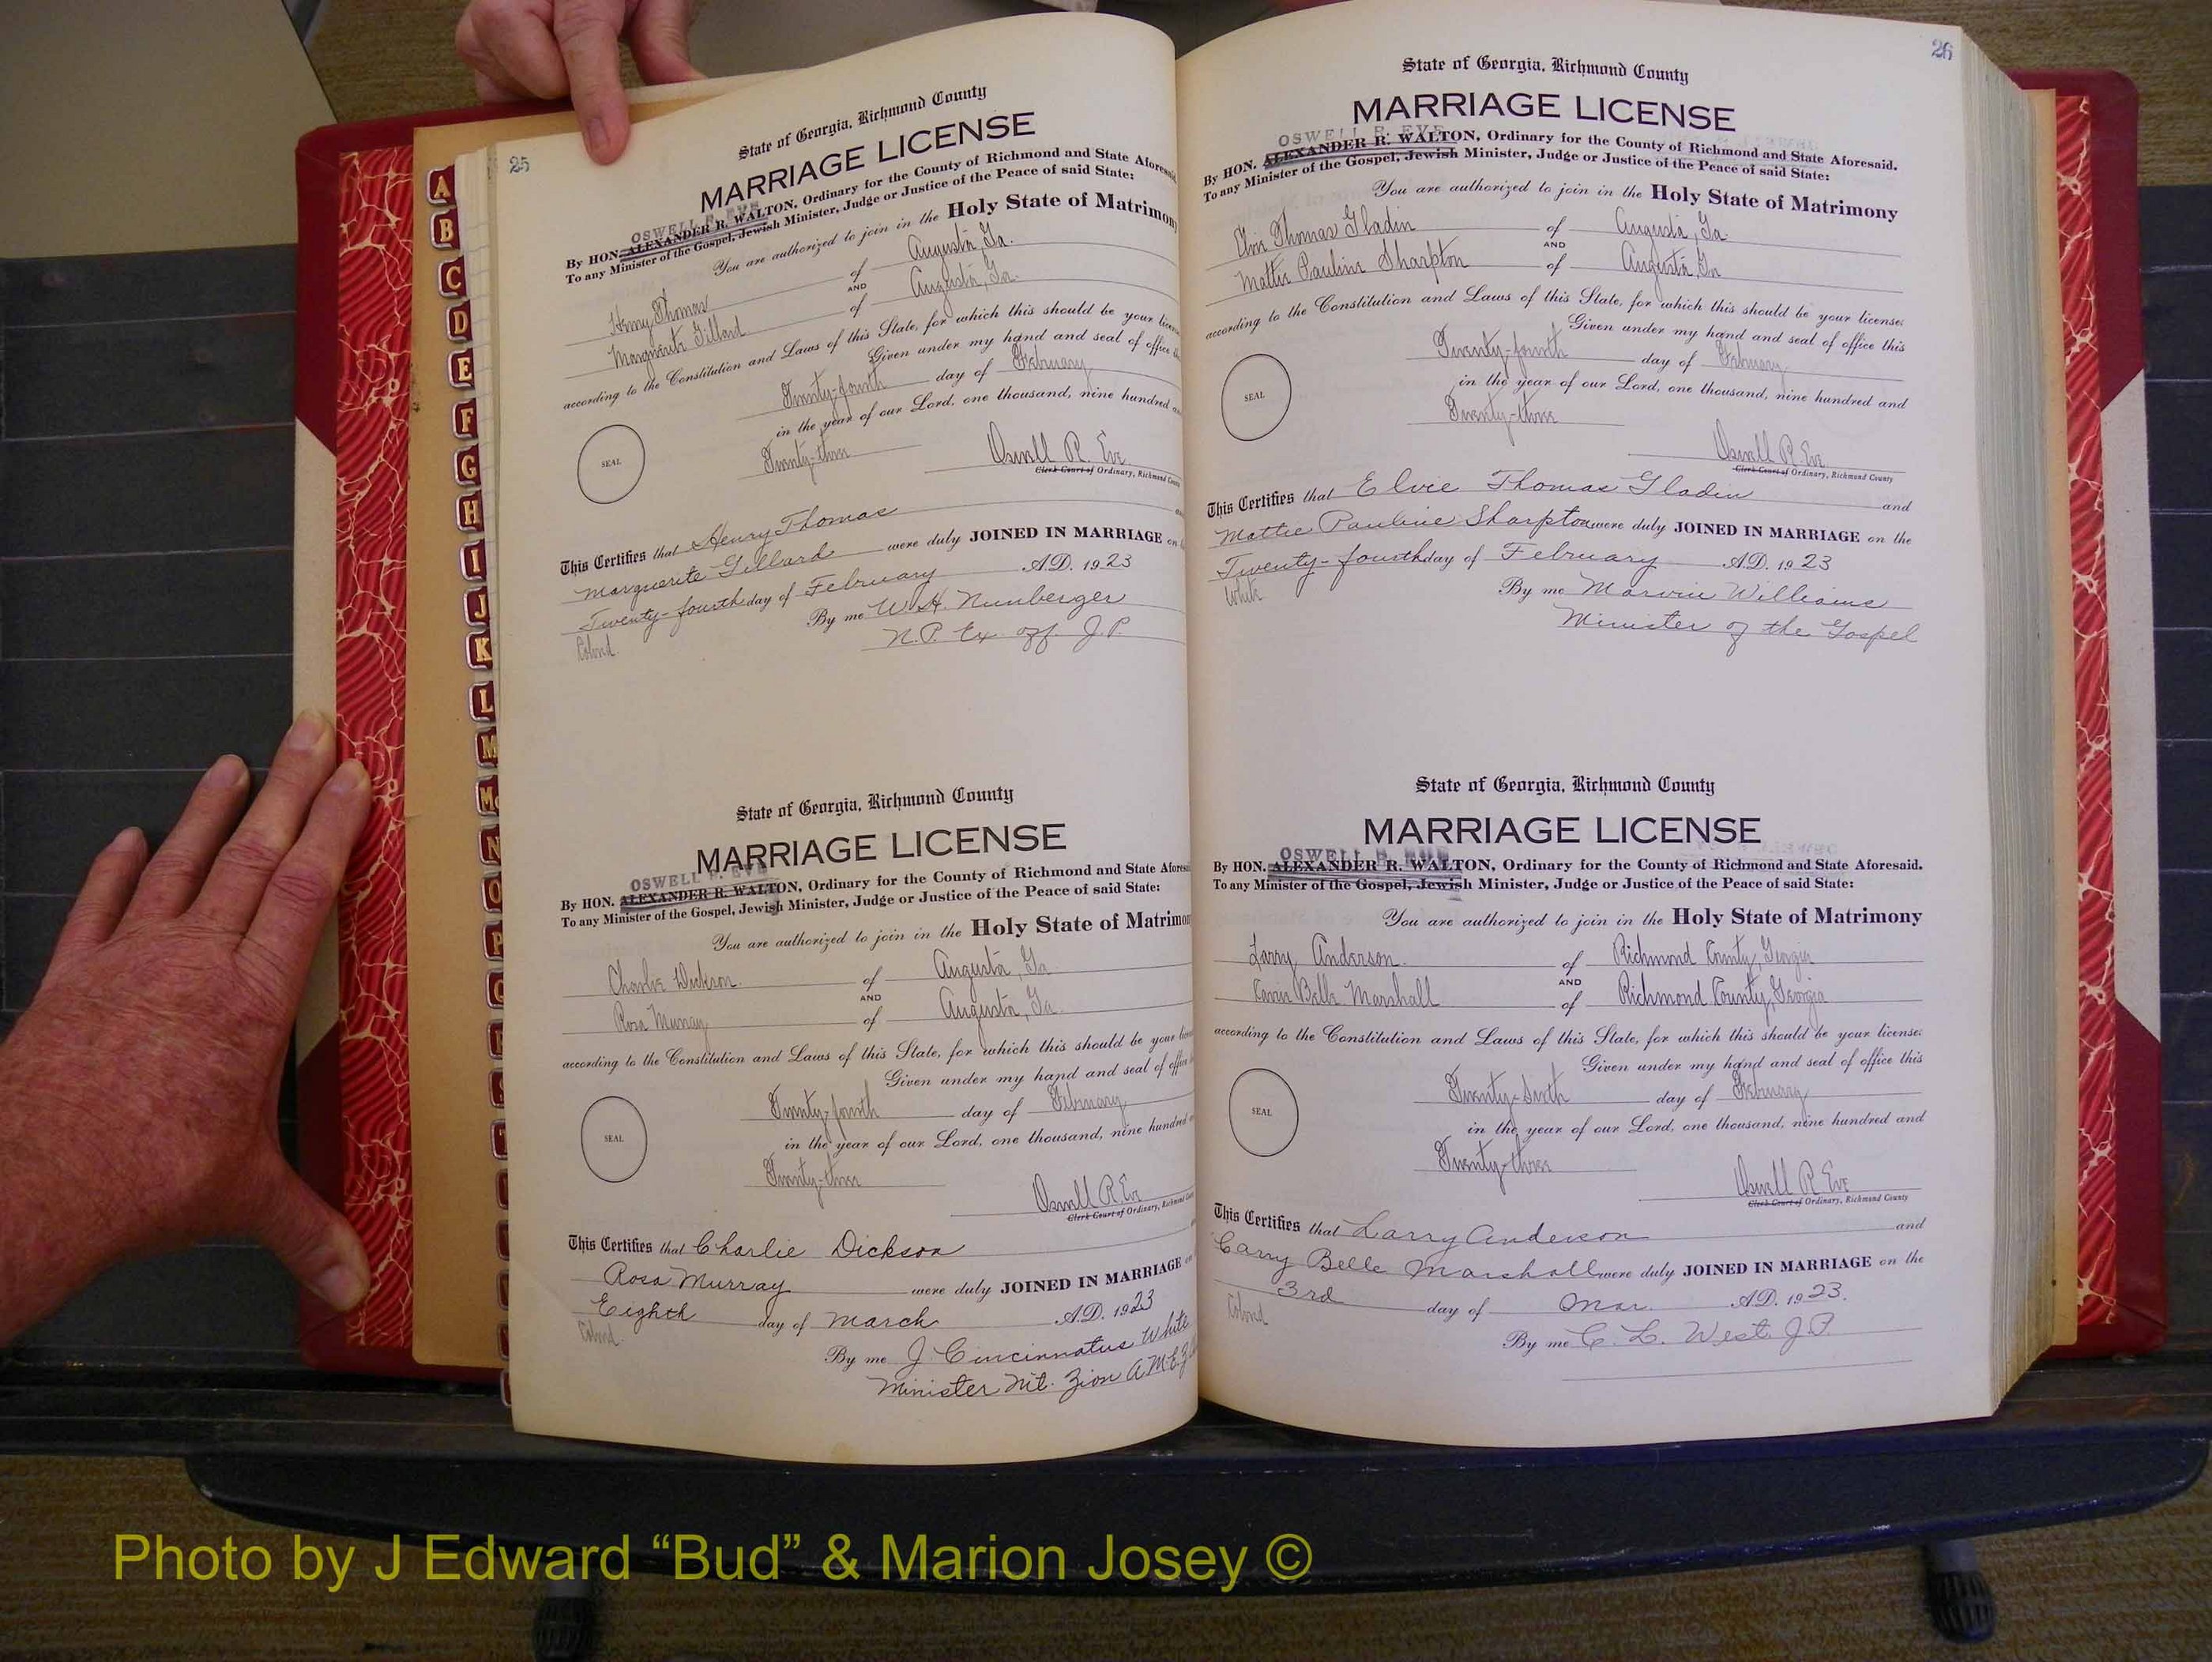 25
State of Georgia, Richmond County
MARRIAGE LICENSE
OSWELL R. EVE
By HON. ALEXANDER R. WALTON, Ordinary for the County of Richmond and State Aforesaid.
To any Minister of the Gospel, Jewish Minister, Judge or Justice of the Peace of said State:
You are authorized to join in the Holy State of Matrimony
Henry Thomas of Augusta Ga.
AND
Marguerite Gillard of Augusta, Ga.
according to the Constitution and Laws of this State, for which this should be your license
Given under my hand and seal of office
Twenty-fourth day of February
in the year of our Lord, one thousand, nine hundred
SEAL
Twenty-three
Oswell R. Eve
Clerk Court of Ordinary, Richmond County
This Certifies that Henry Thomas
Marguerite Gillard were duly JOINED IN MARRIAGE on
Twenty-fourth day of February A.D. 1923
Colored.
By me W. H. Nunberger
N.P. Ex off. J.P.
State of Georgia, Richmond County
MARRIAGE LICENSE
OSWELL R. EVE
By HON. ALEXANDER R. WALTON, Ordinary for the County of Richmond and State Aforesaid
To any Minister of the Gospel, Jewish Minister, Judge or Justice of the Peace of said State:
You are authorized to join in the Holy State of Matrimony
Charlie Dickson of Augusta, Ga
AND
Rosa Murray of Augusta, Ga.
according to the Constitution and Laws of this State, for which this should be your license
Given under my hand and seal of office
Twenty-fourth day of February
in the year of our Lord, one thousand, nine hundred
SEAL
Twenty-three
Oswell R. Eve
Clerk Court of Ordinary, Richmond County
This Certifies that Charlie Dickson
Rosa Murray were duly JOINED IN MARRIAGE
Eighth day of March A.D. 1923
Colored.
By me J. Cincinnatus White
Minister Mt. Zion A.M.E.Z.
26
State of Georgia, Richmond County
MARRIAGE LICENSE
OSWELL R. EVE
By HON. ALEXANDER R. WALTON, Ordinary for the County of Richmond and State Aforesaid.
To any Minister of the Gospel, Jewish Minister, Judge or Justice of the Peace of said State:
You are authorized to join in the Holy State of Matrimony
Elvie Thomas Gladin of Augusta, Ga.
AND
Mattie Pauline Sharpton of Augusta, Ga
according to the Constitution and Laws of this State, for which this should be your license:
Given under my hand and seal of office this
Twenty-fourth day of February
in the year of our Lord, one thousand, nine hundred and
SEAL
Twenty-three
Oswell R. Eve
Clerk Court of Ordinary, Richmond County
This Certifies that Elvie Thomas Gladin and
Mattie Pauline Sharpton were duly JOINED IN MARRIAGE on the
Twenty-fourth day of February A.D. 1923
White
By me Marvin Williams
Minister of the Gospel
State of Georgia, Richmond County
MARRIAGE LICENSE
OSWELL R. EVE
By HON. ALEXANDER R. WALTON, Ordinary for the County of Richmond and State Aforesaid.
To any Minister of the Gospel, Jewish Minister, Judge or Justice of the Peace of said State:
You are authorized to join in the Holy State of Matrimony
Larry Anderson. of Richmond County, Georgia
AND
Carrie Belle Marshall of Richmond County, Georgia
according to the Constitution and Laws of this State, for which this should be your license:
Given under my hand and seal of office this
Twenty-sixth day of February
in the year of our Lord, one thousand, nine hundred and
SEAL
Twenty-three
Oswell R. Eve
Clerk Court of Ordinary, Richmond County
This Certifies that Larry Anderson and
Carry Belle Marshall were duly JOINED IN MARRIAGE on the
3rd day of Mar. A.D. 1923.
Colored
By me C. L. West J.P.
A
B
C
D
E
F
G
H
I
J
K
L
M
Mc
N
O
P
Q
R
S
T
Photo by J Edward “Bud” & Marion Josey ©